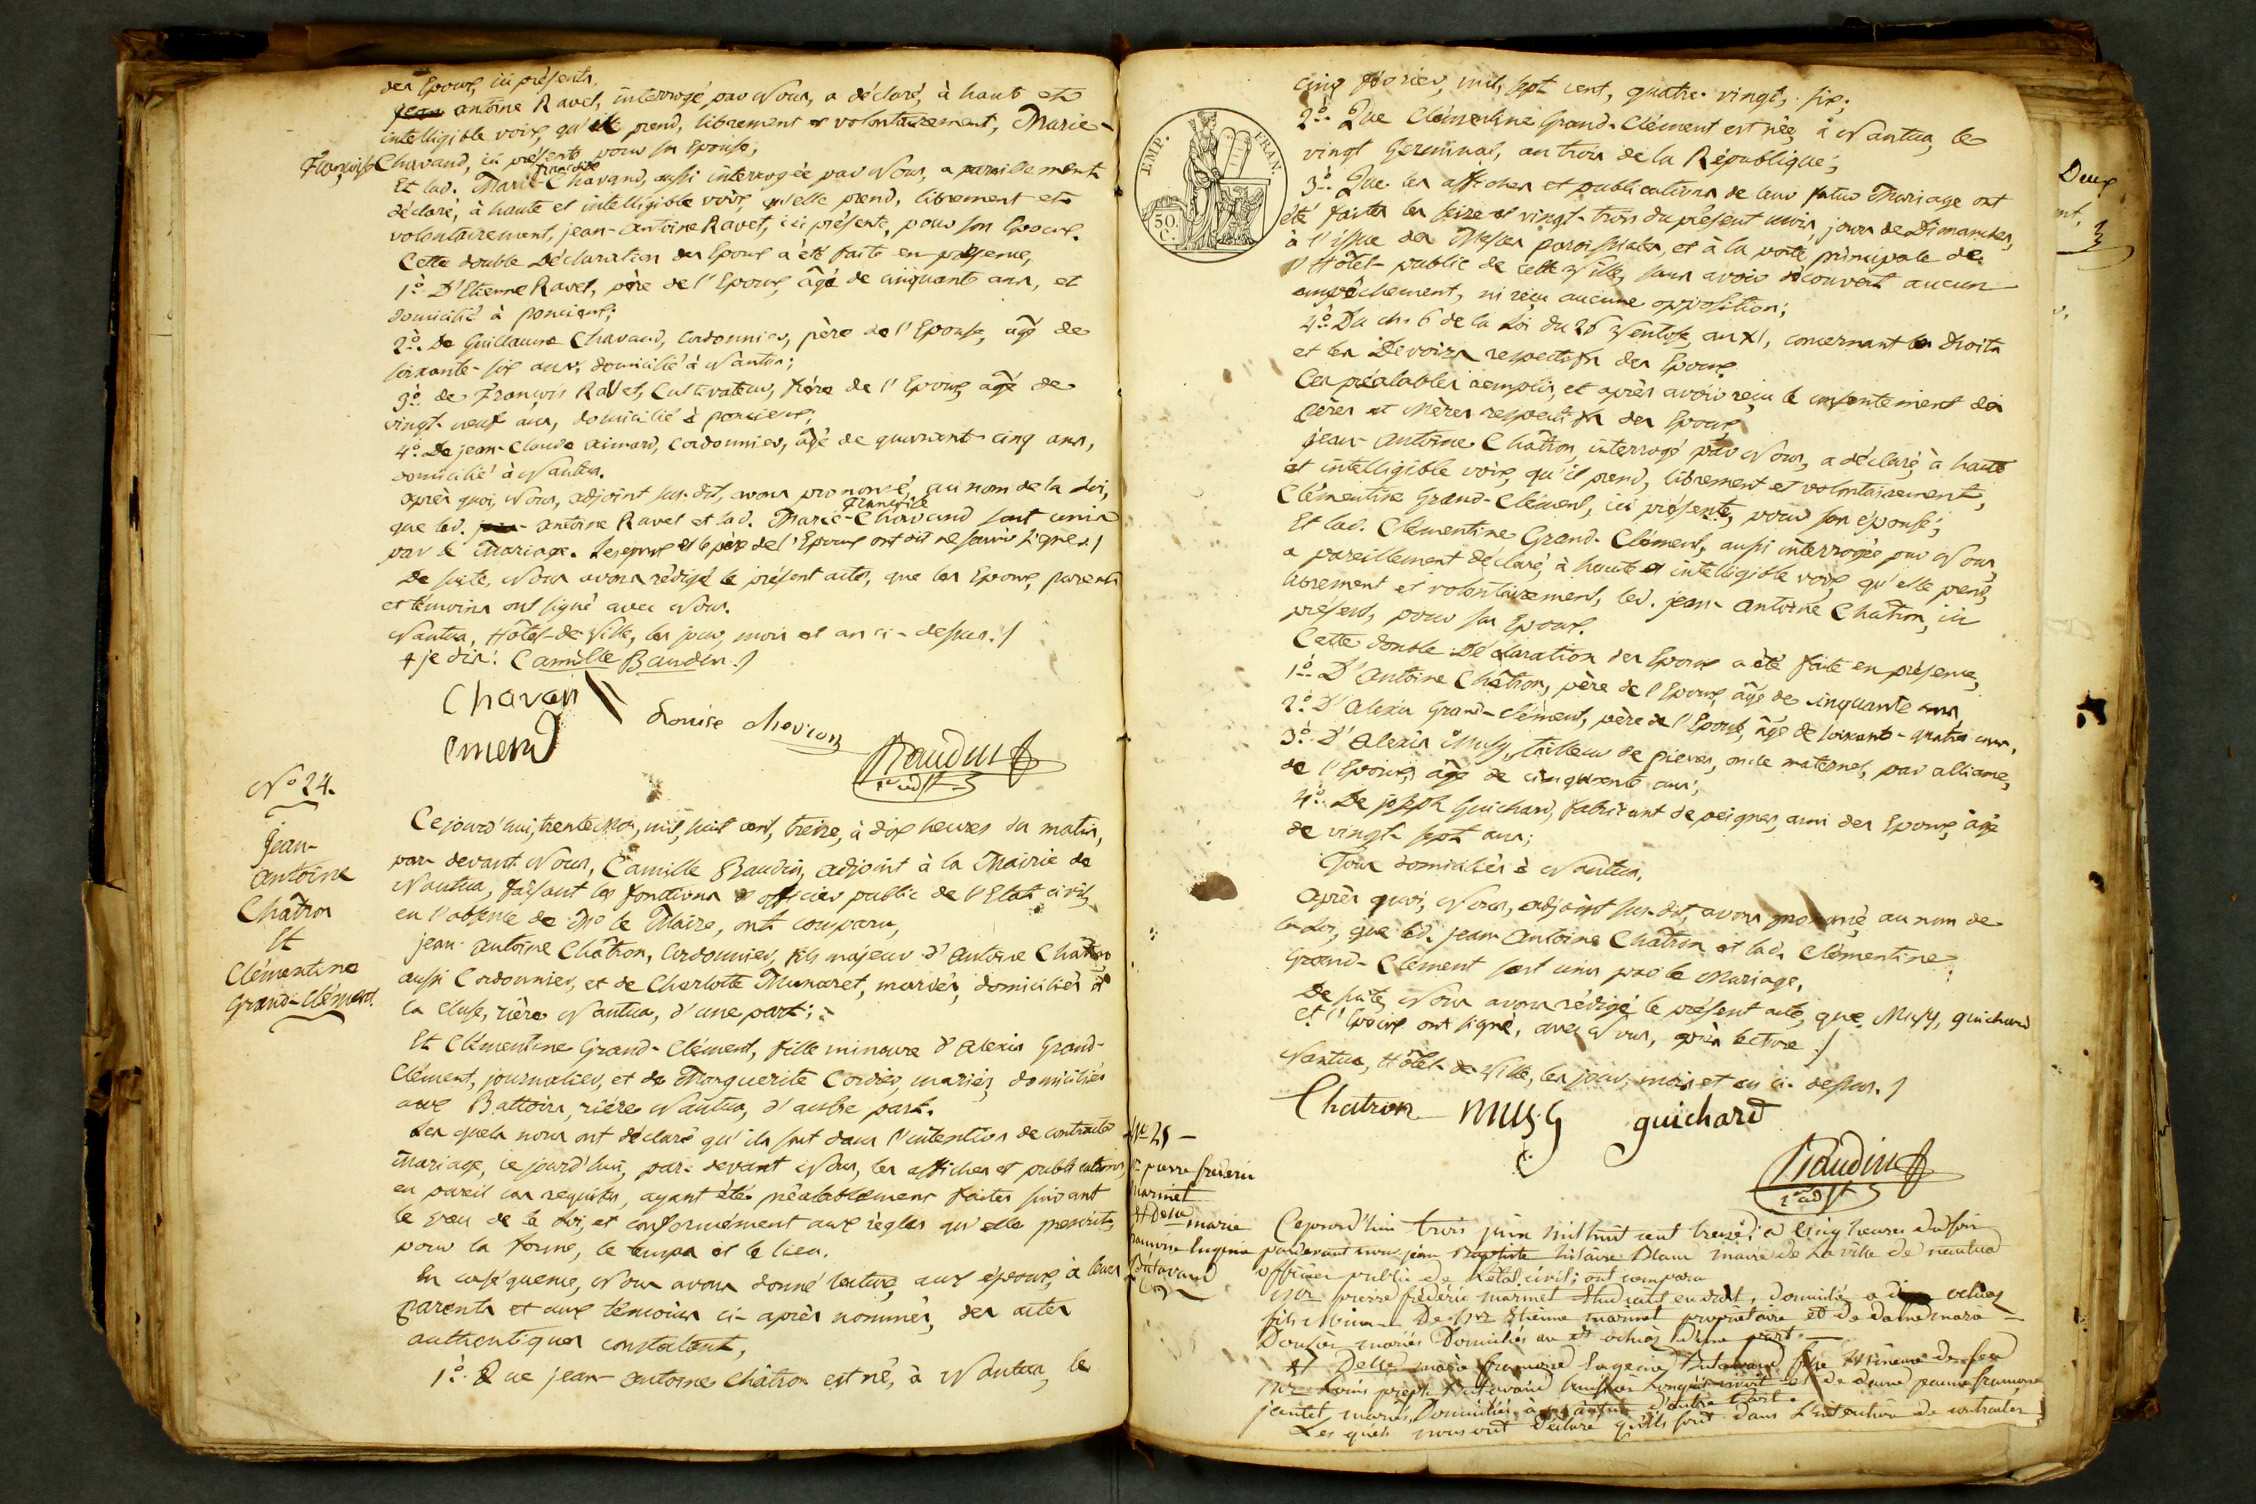 des Epoux, ici présents.
Jean antoine Ravet, interrogé par Nous, a déclaré, à haute et
intelligible voix, qu'il prend, librement et volontairement, Marie-
françoise Chavand, ici présente pour son Epouse;
Et lad. Marie-françoise Chavand, aussi interrogée par Nous, a pareillement
déclaré, à haute et intelligible voix, qu'elle prend, librement et
volontairement, jean-antoine Ravet, ici présent, pour son Epoux.
Cette double Déclaration des Epoux a été faite en présence,
1º D'Etienne Ravet, père de l'Epoux, âgé de cinquante ans, et
domicilié à poncieux;
2º. De Guillaume Chavand, Cordonnier, père de l'Epouse, âgé de
soixante-six ans, domicilié à Nantua;
3º de François Ravet, Cultivateur, frère de l'Epoux, âgé de
vingt-neuf ans, domicilié à poncieux;
4º. De jean-Claude aimard, Cordonnier, âgé de quarante-cinq ans,
domicilié à Nantua.
après quoi, Nous, adjoint sus-dit, avons prononcé, au nom de la Loi,
que led. jean-antoine Ravet et lad. Marie-françoise Chavand sont unis
par le Mariage. Les epoux et le père de l'Epoux ont dit ne savoir signer./
De suite, Nous avons rédigé le présent acte, que les Epoux, parents
et témoins ont signé avec Nous.
Nantua, Hôtel-de-Ville, les jour, mois et an ci-dessus./
+ je dis: Camille Baudin./
Chavan
emerd
Louise chevron
Baudin
1er adjt
Nº 24.
Jean-
antoine
Châtron
Et
Clémentine
Grand-Clément.
Cejourd'hui, trente Mai, mil, huit cent, treize, à dix heures du matin,
par-devant Nous, Camille Baudin, adjoint à la Mairie de
Nantua, faisant les fonctions d'officier public de l'Etat civil,
en l'absence de Mr le Maire, ont comparu,
jean-antoine Châtron, Cordonnier, fils majeur d'antoine Châtron
aussi Cordonnier, et de Charlotte Munaret, mariés, domiciliés à
la Cluse, rière Nantua, d'une part;
Et Clémentine Grand-Clément, fille mineure d'alexis Grand-
Clément, journalier, et de Marguerite Cordier, mariés, domiciliés
aux Battoirs, rière Nantua, d'autre part.
Les quels nous ont déclaré qu'ils sont dans l'intention de contracter
Mariage, cejourd'hui, par-devant Nous, les affiches et publications,
en pareil cas requises, ayant été préalablement faites suivant
le vœu de la Loi, et conformément aux règles qu'elle prescrit,
pour la forme, le temps et le lieu.
En conséquence, Nous avons donné lecture, aux époux, à leurs
parents et aux témoins ci-après nommés, des actes
authentiques constatant,
1º. Que jean-antoine Châtron est né, à Nantua, le
EMP. FRAN.
50. C.
cinq février, mil, sept cent, quatre-vingt-six;
2º. Que Clémentine Grand-Clément est née, à Nantua, le
vingt Germinal, an trois de la République;
3º. Que les affiches et publications de leur futur Mariage ont
été faites les seize et vingt-trois du présent mois, jours de Dimanches,
à l'issue des Messes paroissiales, et à la porte principale de
l'Hôtel-public de cette Ville, sans avoir découvert aucun
empêchement, ni reçu aucune opposition;
4º. Du ch. 6 de la Loi du 26 Ventose, an XI, concernant les Droits
et les Devoirs respectifs des Epoux.
Ces préalables remplis, et après avoir reçu le consentement des
Pères et Mères respectifs des Epoux,
jean-antoine Châtron, interrogé par Nous, a déclaré, à haute
et intelligible voix, qu'il prend, librement et volontairement,
Clémentine Grand-Clément, ici présente, pour son épouse;
Et lad. Clémentine Grand-Clément, aussi interrogée par Nous,
a pareillement déclaré, à haute et intelligible voix, qu'elle prend,
librement et volontairement, led. jean-antoine Châtron, ici
présent, pour son Epoux.
Cette double Déclaration des Epoux a été faite en présence,
1º. D'antoine Châtron, père de l'Epoux, âgé de cinquante ans,
2º. D'alexis Grand-Clément, père de l'Epouse, âgé de soixante-quatre ans,
3º. D'alexis Musy, tailleur de pierres, oncle maternel, par alliance,
de l'Epoux, âgé de cinquante ans;
4º. De joseph Guichard, fabricant de peignes, ami des Epoux, âgé
de vingt-sept ans;
Tous domiciliés à Nantua.
après quoi, Nous, adjoint sus-dit, avons prononcé au nom de
la Loi, que led. jean-antoine Châtron et lad. Clémentine
Grand-Clément sont unis par le Mariage.
De suite, Nous avons rédigé le présent acte, que Musy, guichard
et l'Epoux ont signé, avec Nous, après lecture./
Nantua, Hôtel-de-Ville, les jour, mois et an ci-dessus./
Chatron musy guichard
Baudin
1er adjt
Nº 25
pierre frédéric
marinet
Et Delle
marie
françoise Eugenie
Cejourd'hui trois juin mil huit cent treize, à cinq heures du soir
pardevant nous jean Baptiste hilaire maire de la ville de nantua
officier public de l'état civil; ont comparu
Mr. pierre frédéric marinet Etudiant en droit, domicilié a
fils mineur De Mr Etienne marinet propriétaire et de dame marie
Doufier mariés Domiciliés au dit d'une part.
Et Delle marie françoise Eugenie fille Mineure de feu
Mr Louis joseph et de dame jeanne françoise
jantet, mariés, Domiciliés à nantua d'autre part.
Les quels nous ont déclaré qu'ils sont dans l'intention de contracter
Deux
nt.